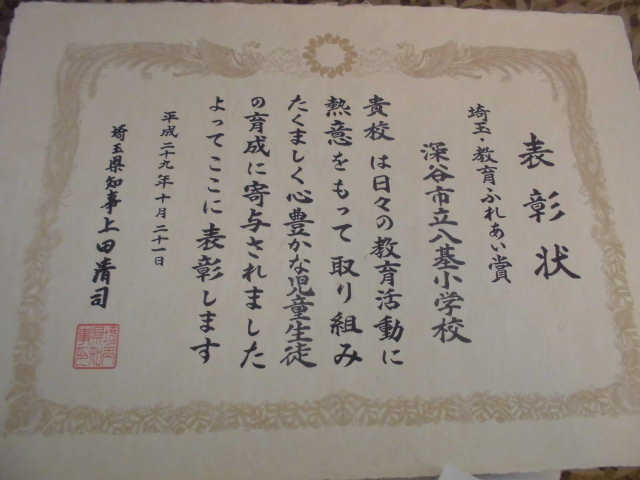 表彰状
埼玉・教育ふれあい賞
深谷市立八基小学校
貴校は日々の教育活動に
熱意をもって取り組み
たくましく心豊かな児童生徒
の育成に寄与されました
よってここに表彰します
平成二十九年十月二十一日
埼玉県知事上田清司
埼玉
県知
事之印